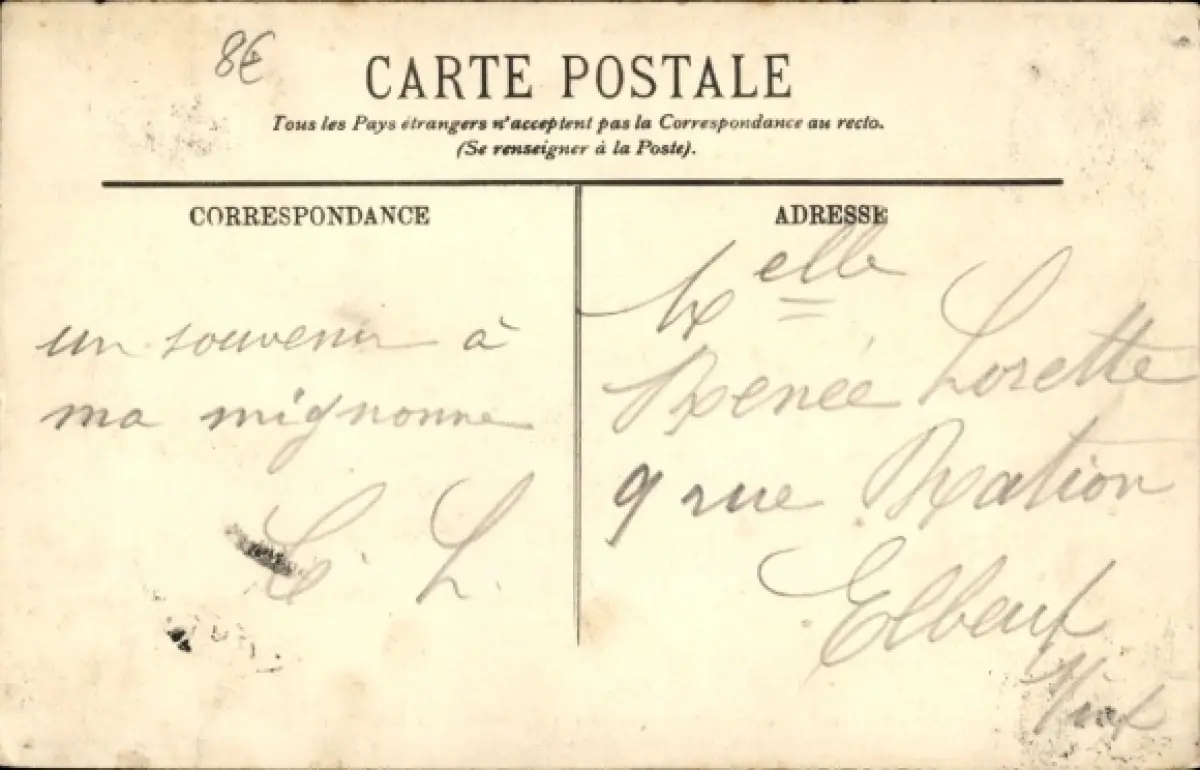 8€
CARTE POSTALE
Tous les Pays étrangers n'acceptent pas la Correspondance au recto.
(Se renseigner à la Poste).
CORRESPONDANCE
ADRESSE
un souvenir à
ma mignonne
L.
Melle
Renée Lorette
9 rue
Elbeuf